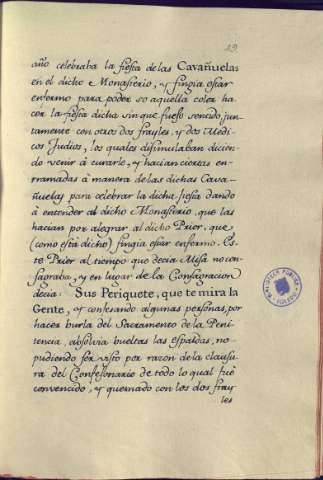 29
año celebraba la fiesta de las Cavañuelas
en el dicho Monasterio, y fingia estar
enfermo para poder so aquella color ha
cer la fiesta dicha sin que fuese sentido jun
tamente con otros dos frayles, y dos Medi
cos Judios, los quales disimulaban dicien
do venir à curarle, y hacian ciertas en
rramadas à manera de las dichas Cava-
ñuelas para celebrar la dicha fiesta dando
à entender al dicho Monasterio, que las
hacian por alegrar al dicho Prior, que
(como està dicho) fingia estar enfermo. Es-
te Prior al tiempo que decia Misa no con
sagraba, y en lugar de la Consagracion
decia: Sus Periquete, que te mira la
Gente, y confesando algunas personas, por
hacer burla del Sacramento de la Peni
tencia, absolvia bueltas las espaldas, no
pudiendo ser visto por razon de la clausu
ra del Confesonario de todo lo qual fuè
convencido, y quemado con los dos fray
les